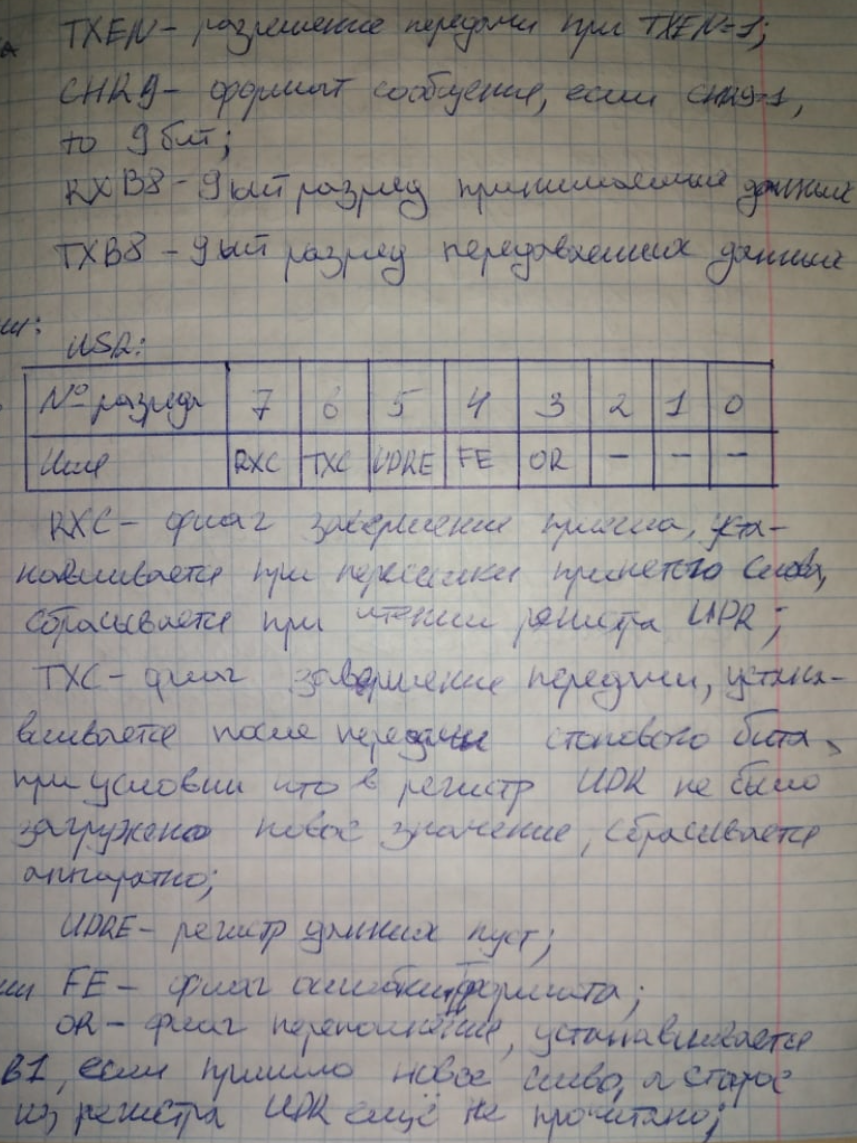 TXEN – разрешение передачи при TXEN=1;
CHR9 – формат сообщения, если CHR9=1,
то 9 бит;
RXB8 – 9ый разряд принимаемых данных
TXB8 – 9ый разряд передаваемых данных
USR:
№ разряда 7 6 5 4 3 2 1 0
Имя RXC TXC UDRE FE OR – – –
RXC – флаг завершения приема, уста-
навливается при пересылки принетого слова,
сбрасывается при чтении регистра UDR;
TXC – флаг завершения передачи, устана-
вливается после передачи стопового бита,
при условии что в регистр UDR не было
загружено новое значение, сбрасывается
аппаратно;
UDRE – регистр данных пуст;
FE – флаг ошибки формата;
OR – флаг переполнения, устанавливается
в 1, если пришло новое слово, а старое
из регистра UDR ещё не прочитано;